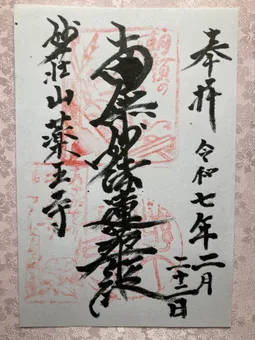 奉拝 令和七年二月
二十二日
南無妙法蓮華経
妙荘山薬王寺